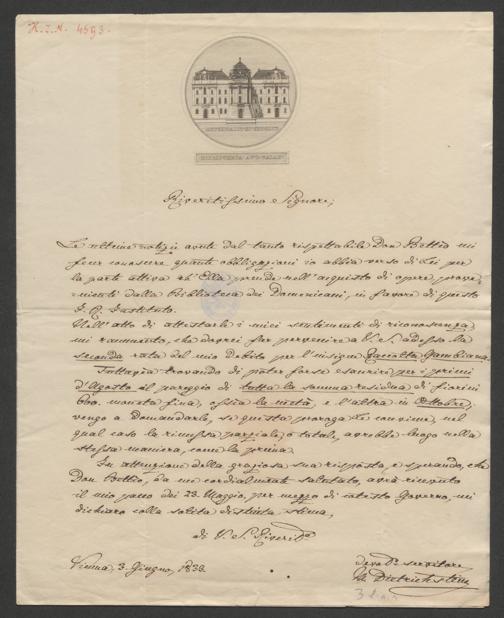 K. I. N. 4593.
BIBLIOTHECA AVG. PALAT.
Riveritissimo Signore;
Le ultime notizie avute dal tanto rispettabile Don Bettio mi
fecer conoscere quante obbligazioni io abbia verso di Lei per
la parte attiva ch'Ella prende nell'acquisto di opere, prove-
nienti dalla Biblioteca dei Domenicani, in favore di questo
I. R. Instituto.
Nell'atto di attestarle i miei sentimenti di riconoscenza,
mi rammento, che dovrei far pervenire a V. S. adesso la
seconda rata del mio debito per l'insigne Raccolta Gambiana.
Tuttavia trovando di poter forse esaurire per i primi
d'Agosto il pareggio di tutta la somma residua di fiorini
600. moneta fina, ossia la metà, e l'altra in Ottobre,
vengo a domandarle, se questa proroga Le conviene, nel
qual caso la rimessa parziale, o totale, avrebbe luogo nella
stessa maniera, come la prima.
In attenzione della graziosa sua risposta, e sperando, che
Don Bettio, da me cordialmente salutato, avrà ricevuto
il mio pacco dei 23. Maggio, per mezzo di cotesto Governo, mi
dichiaro colla solita distinta stima,
di V. S. Riverit.ma
Vienna 3. Giugno, 1833.
devo.mo servitore
Dietrichstein